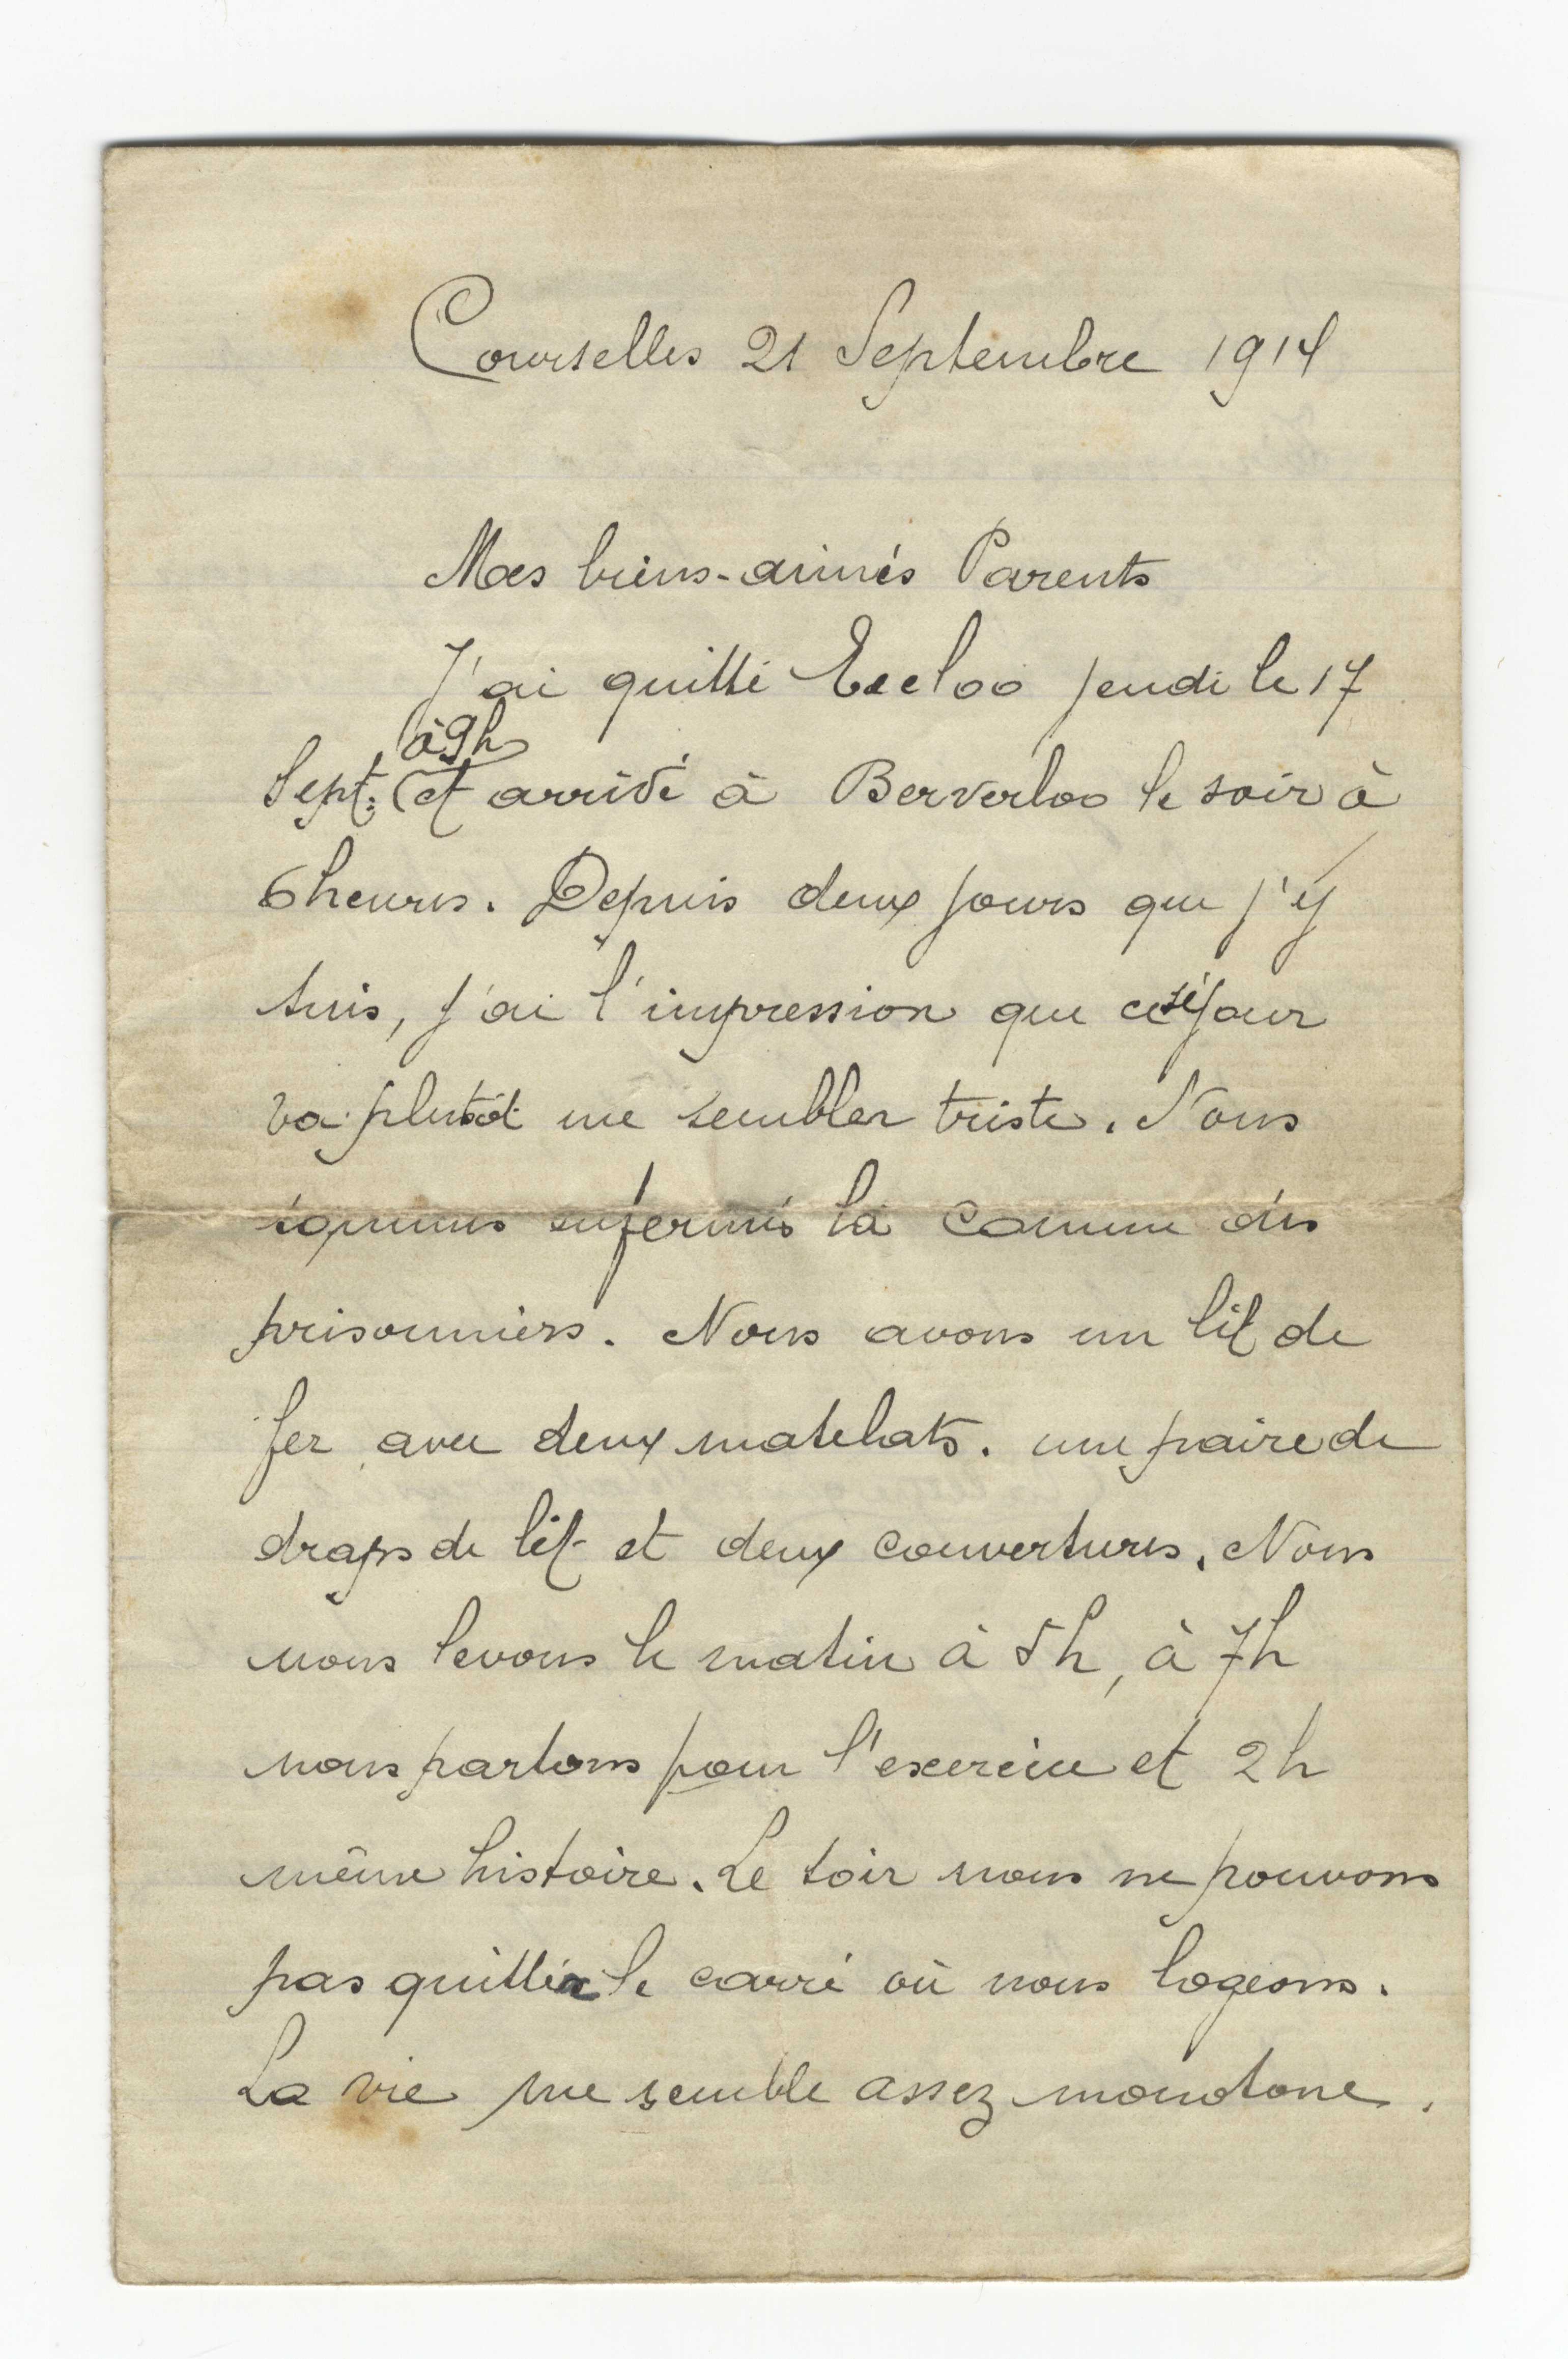 Courselles 21 Septembre 1914
Mes biens-aimés Parents
J'ai quitté Eecloo jeudi le 17
à 9h
Sept: et arrivé à Berverloo le soir à
6 heures. Depuis deux jours que j'y
suis, j'ai l'impression que ce séjour
va plutôt me sembler triste. Nous
sommes enfermés là comme des
prisonniers. Nous avons un lit de
fer avec deux matelats. une paire de
draps de lit et deux couvertures. Nous
nous levons le matin à 5h, à 7h
nous partons pour l'exercice et 2h
même histoire. Le soir nous ne pouvons
pas quitter le carré où nous logeons.
La vie me semble assez monotone.